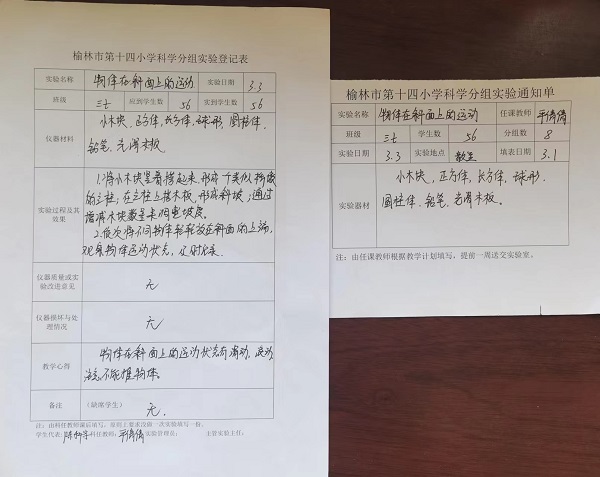 榆林市第十四小学科学分组实验登记表
实验名称 物体在斜面上的运动 实验日期 3.3
班级 三七 应到学生数 56 实到学生数 56
仪器材料 小木块,正方体,长方体,球形,圆柱体,
铅笔,光滑木板
实验过程及其效果
1.将小木块垒叠搭起来,形成
的立柱;在立柱上搭木板,形成斜坡;通过
增减木块数量来调整坡度。
2.依次将不同物体轻轻放在斜面的上端,
观察物体运动状况,及时记录。
仪器质量或实验改进意见 无
仪器损坏与处理情况 无
教学心得 物体在斜面上的运动状态有滑动,滚动
不能推物体。
备注 (缺席学生) 无.
注:由科任教师课后填写,原则上要求每做一次实验填写一份。
学生代表: 科任教师: 实验管理员: 主管实验主任:
榆林市第十四小学科学分组实验通知单
实验名称 物体在斜面上的运动 任课教师
班级 三七 学生数 56 分组数 8
实验日期 3.3 实验地点 教室 填表日期 3.1
实验器材 小木块,正方体,长方体,球形,
圆柱体,铅笔,光滑木板。
注:由任课教师根据教学计划填写,提前一周送交实验室。